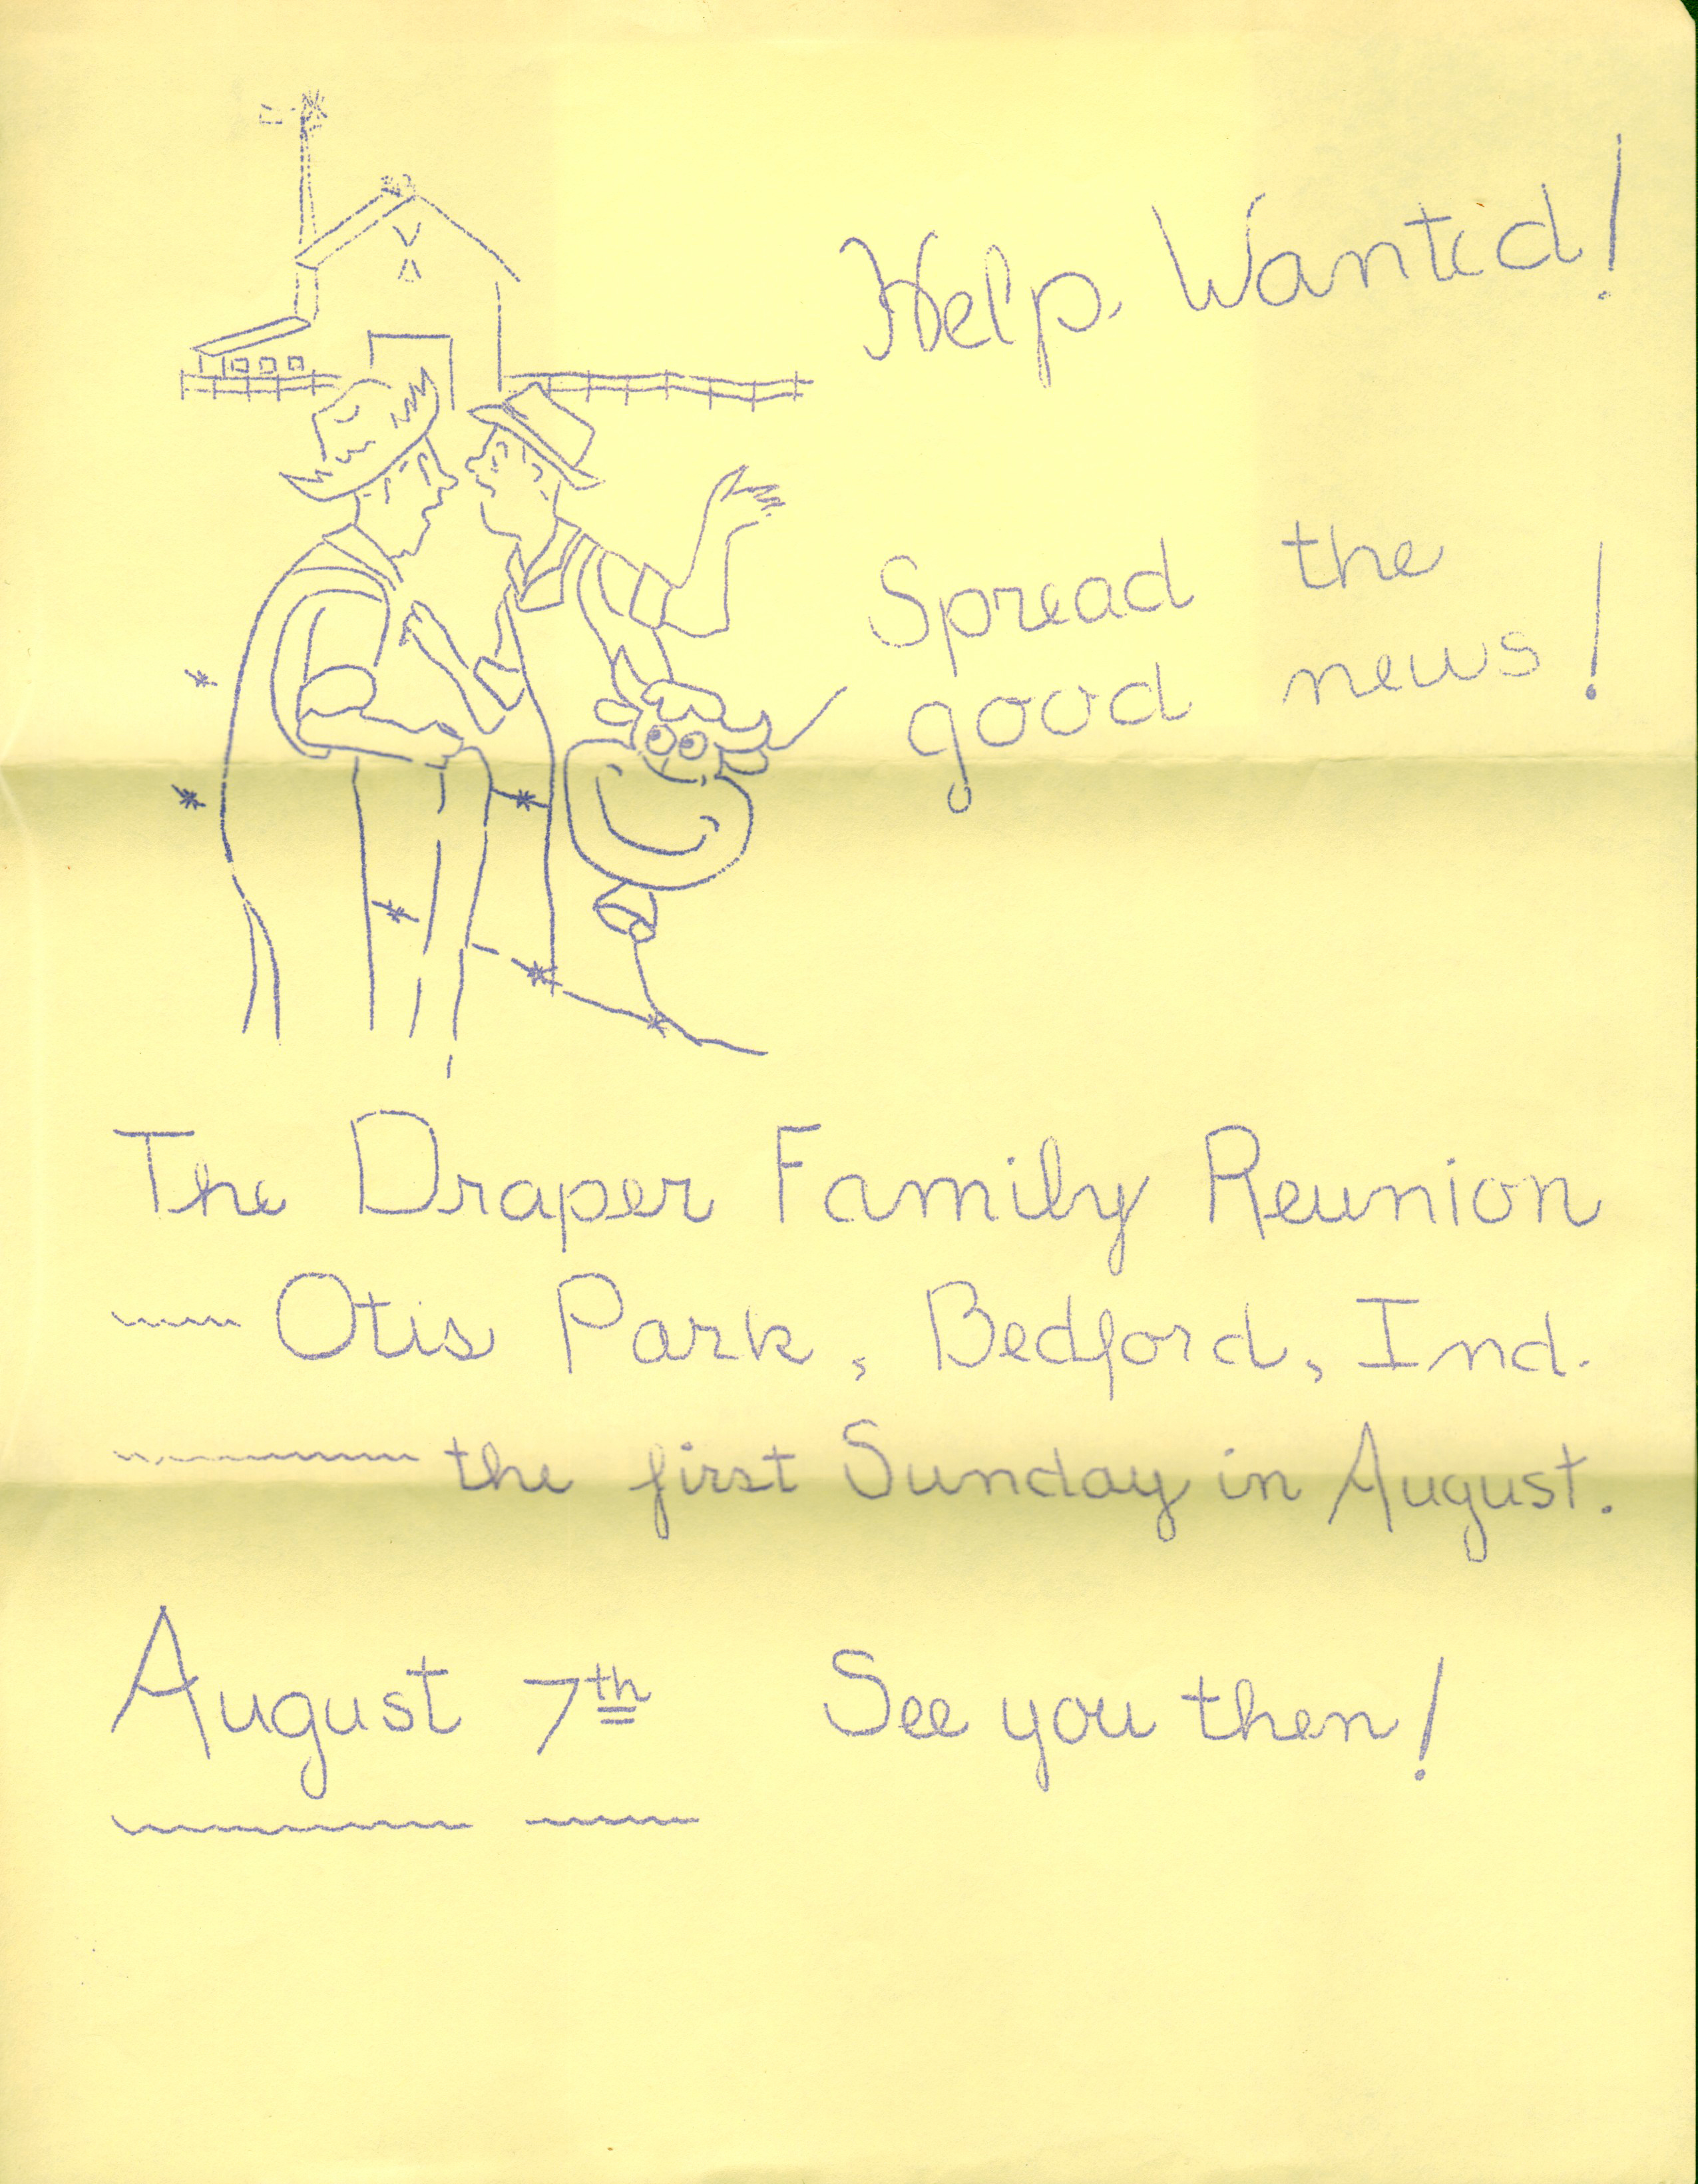 Help Wanted!
Spread the
good news!
The Draper Family Reunion
Otis Park, Bedford, Ind.
the first Sunday in August.
August 7th See you then!